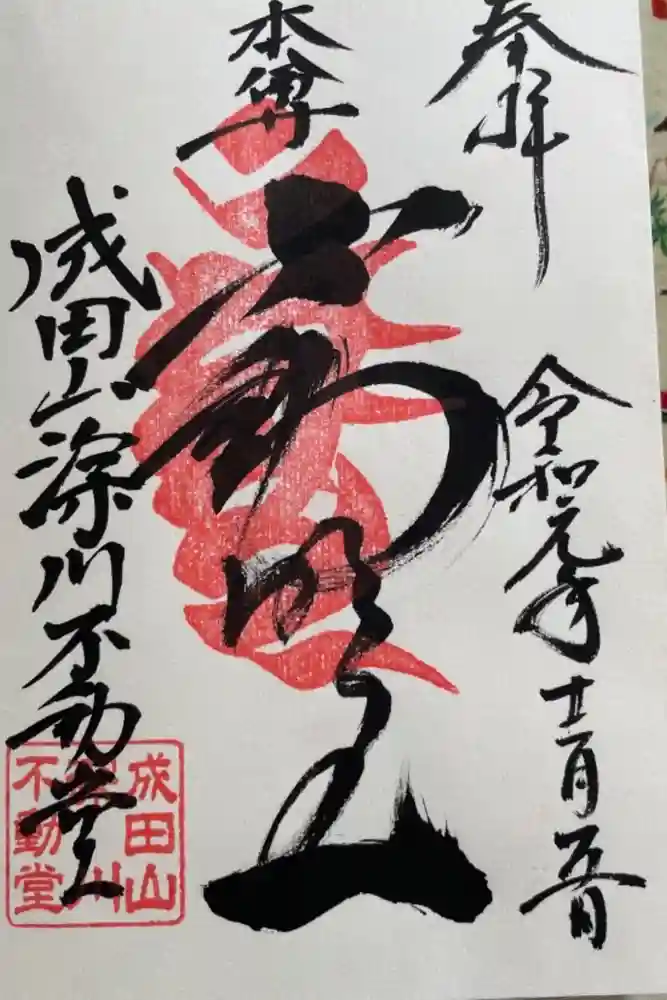 奉拝
令和元年十二月五日
本尊
不動明王
成田山深川不動堂
成田山
深川
不動堂